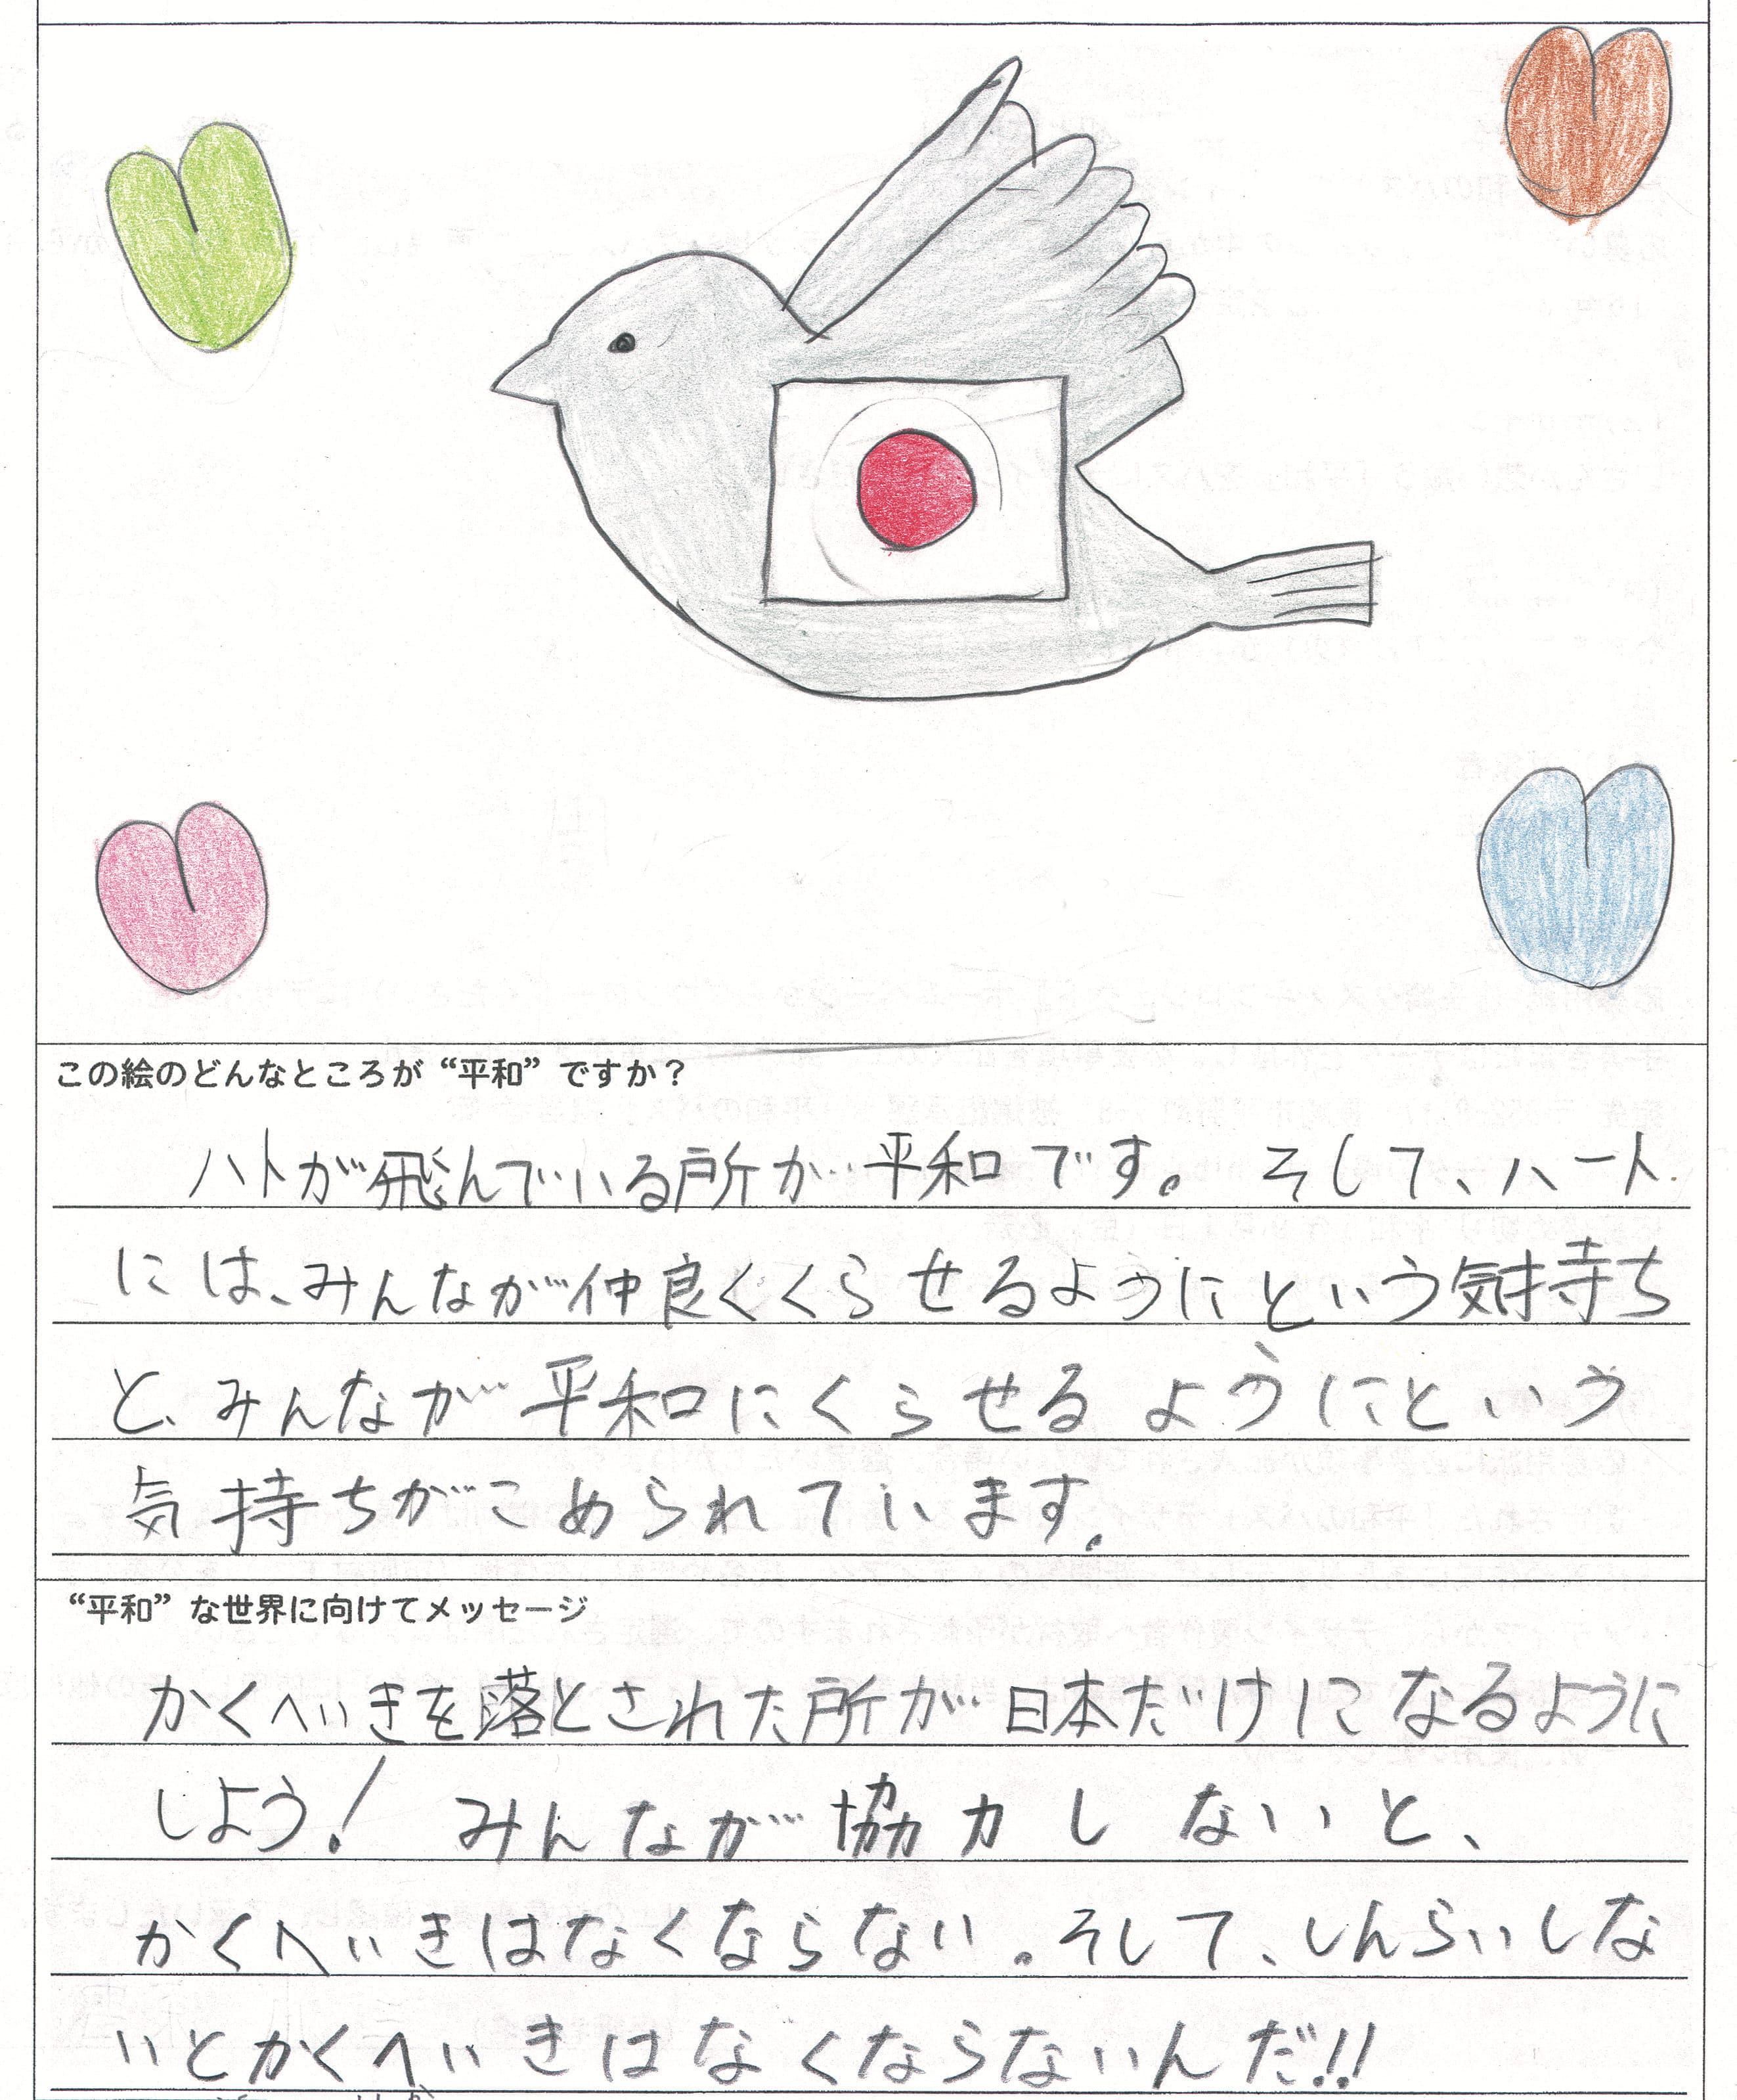 この絵のどんなところが“平和”ですか？
ハトが飛んでいる所が平和です。そして、ハート
には、みんなが仲良くくらせるようにという気持ち
と、みんなが平和にくらせるようにという
気持ちがこめられています。
“平和”な世界に向けてメッセージ
かくへいきを落とされた所が日本だけになるように
しよう！みんなが協力しないと、
かくへいきはなくならない。そして、しんらいしな
いとかくへいきはなくならないんだ!!